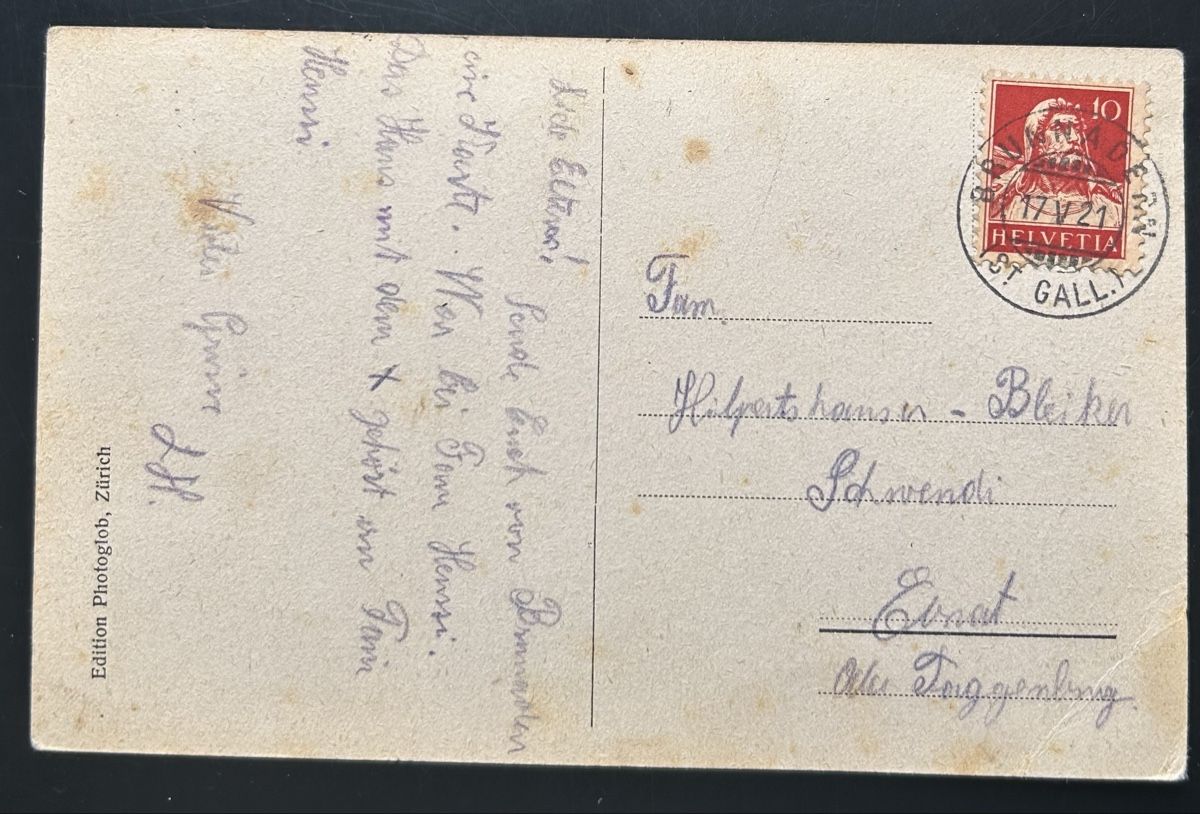 Liebe Eltern!
Sende Euch von Brunnadern
eine Karte. War bei Fam Henssi.
Das Haus mit dem X gehört an Fam
Henssi
Viele Grüsse
LH.
Edition Photoglob, Zürich
10
HELVETIA
BRUNNADERN
17 V 21
(ST. GALL.)
Fam.
Hilpertshauser - Bleiker
Schwendi
Ebnat
Toggenburg